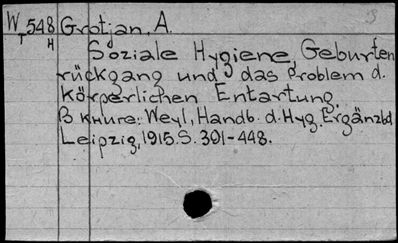 W 548 Grotjan, A.
T H
Soziale Hygiene, Geburten
rückgang und das Problem d.
körperlichen Entartung.
В книге: Weyl, Handb. d. Hyg. Ergänzbd
Leipzig, 1915. S. 391-448.